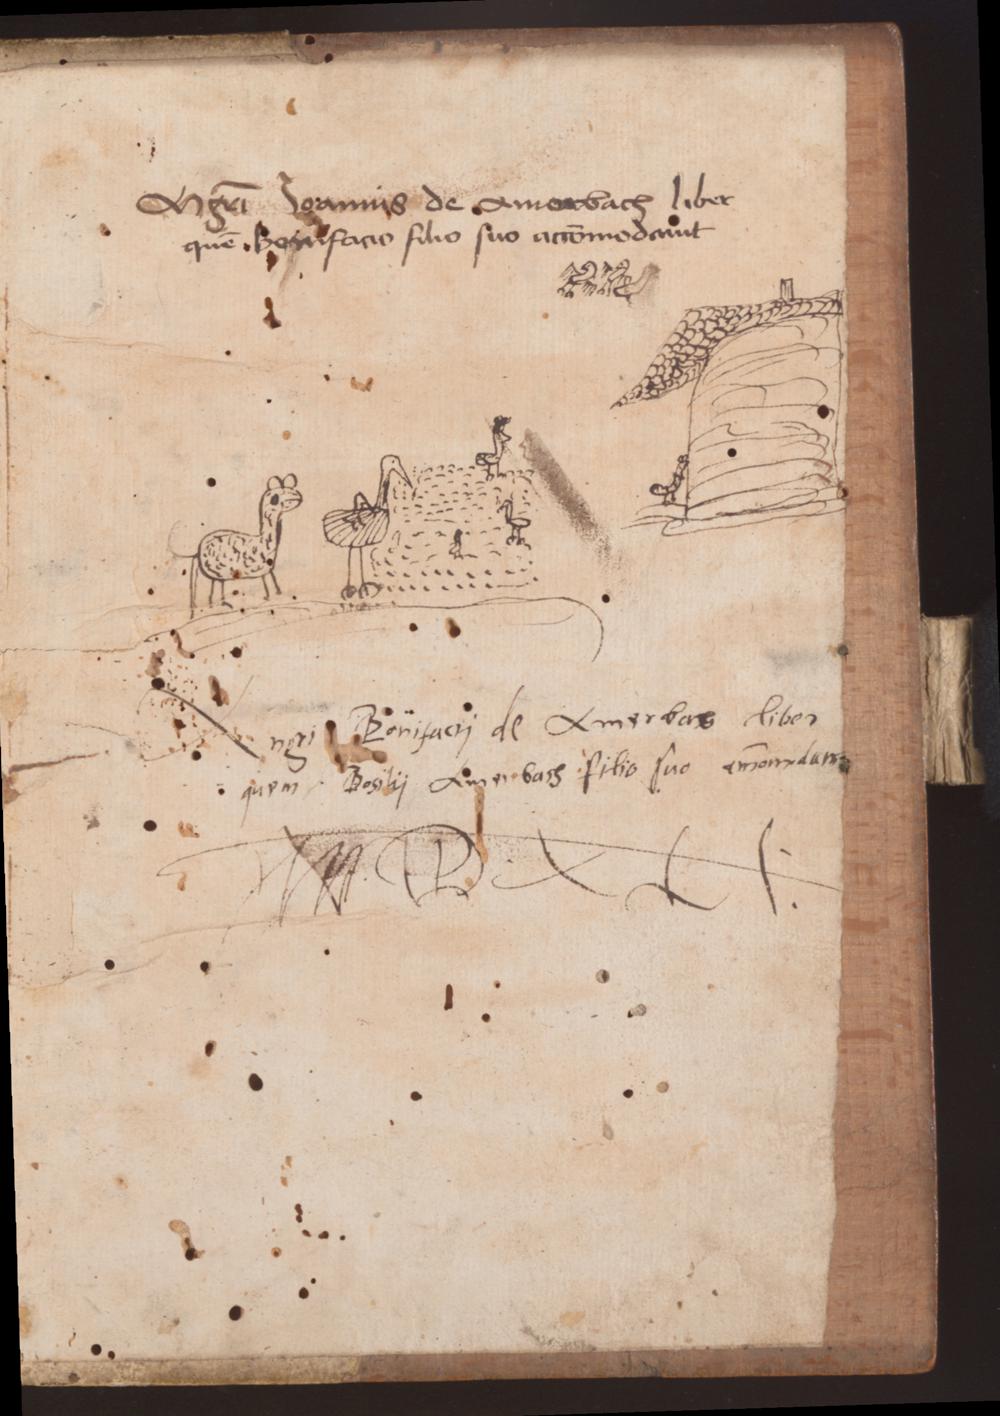 Mgrī Joannis de Amorbach liber
quē Bonifacio filio suo accōmodauit
ngri Bonifacij de Amerbach liber
quem Basilij Amerbach filio suo